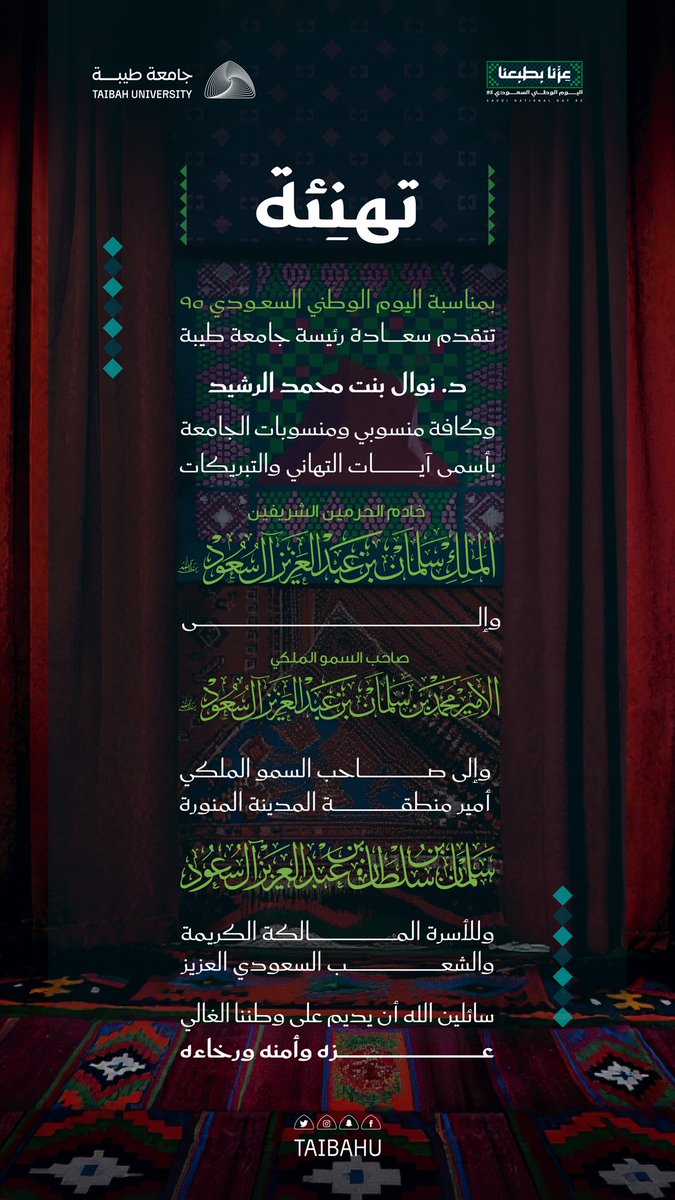 جامعة طيبة
TAIBAH UNIVERSITY
عزّنا بطبعنا
اليوم الوطني السعودي 95
SAUDI NATIONAL DAY 95
تهنِئة
بمناسبة اليوم الوطني السعودي ٩٥
تتقدم سعادة رئيسة جامعة طيبة
د. نوال بنت محمد الرشيد
وكافة منسوبي ومنسوبات الجامعة
بأسمى آيات التهاني والتبريكات
خادم الحرمين الشريفين
الملك سلمان بن عبدالعزيز آل سعود
وإلى
صاحب السمو الملكي
الأمير محمد بن سلمان بن عبدالعزيز آل سعود
وإلى صاحب السمو الملكي
أمير منطقة المدينة المنورة
سلمان بن سلطان بن عبدالعزيز آل سعود
وللأسرة المالكة الكريمة
والشعب السعودي العزيز
سائلين الله أن يديم على وطننا الغالي
عزه وأمنه ورخاءه
TAIBAHU